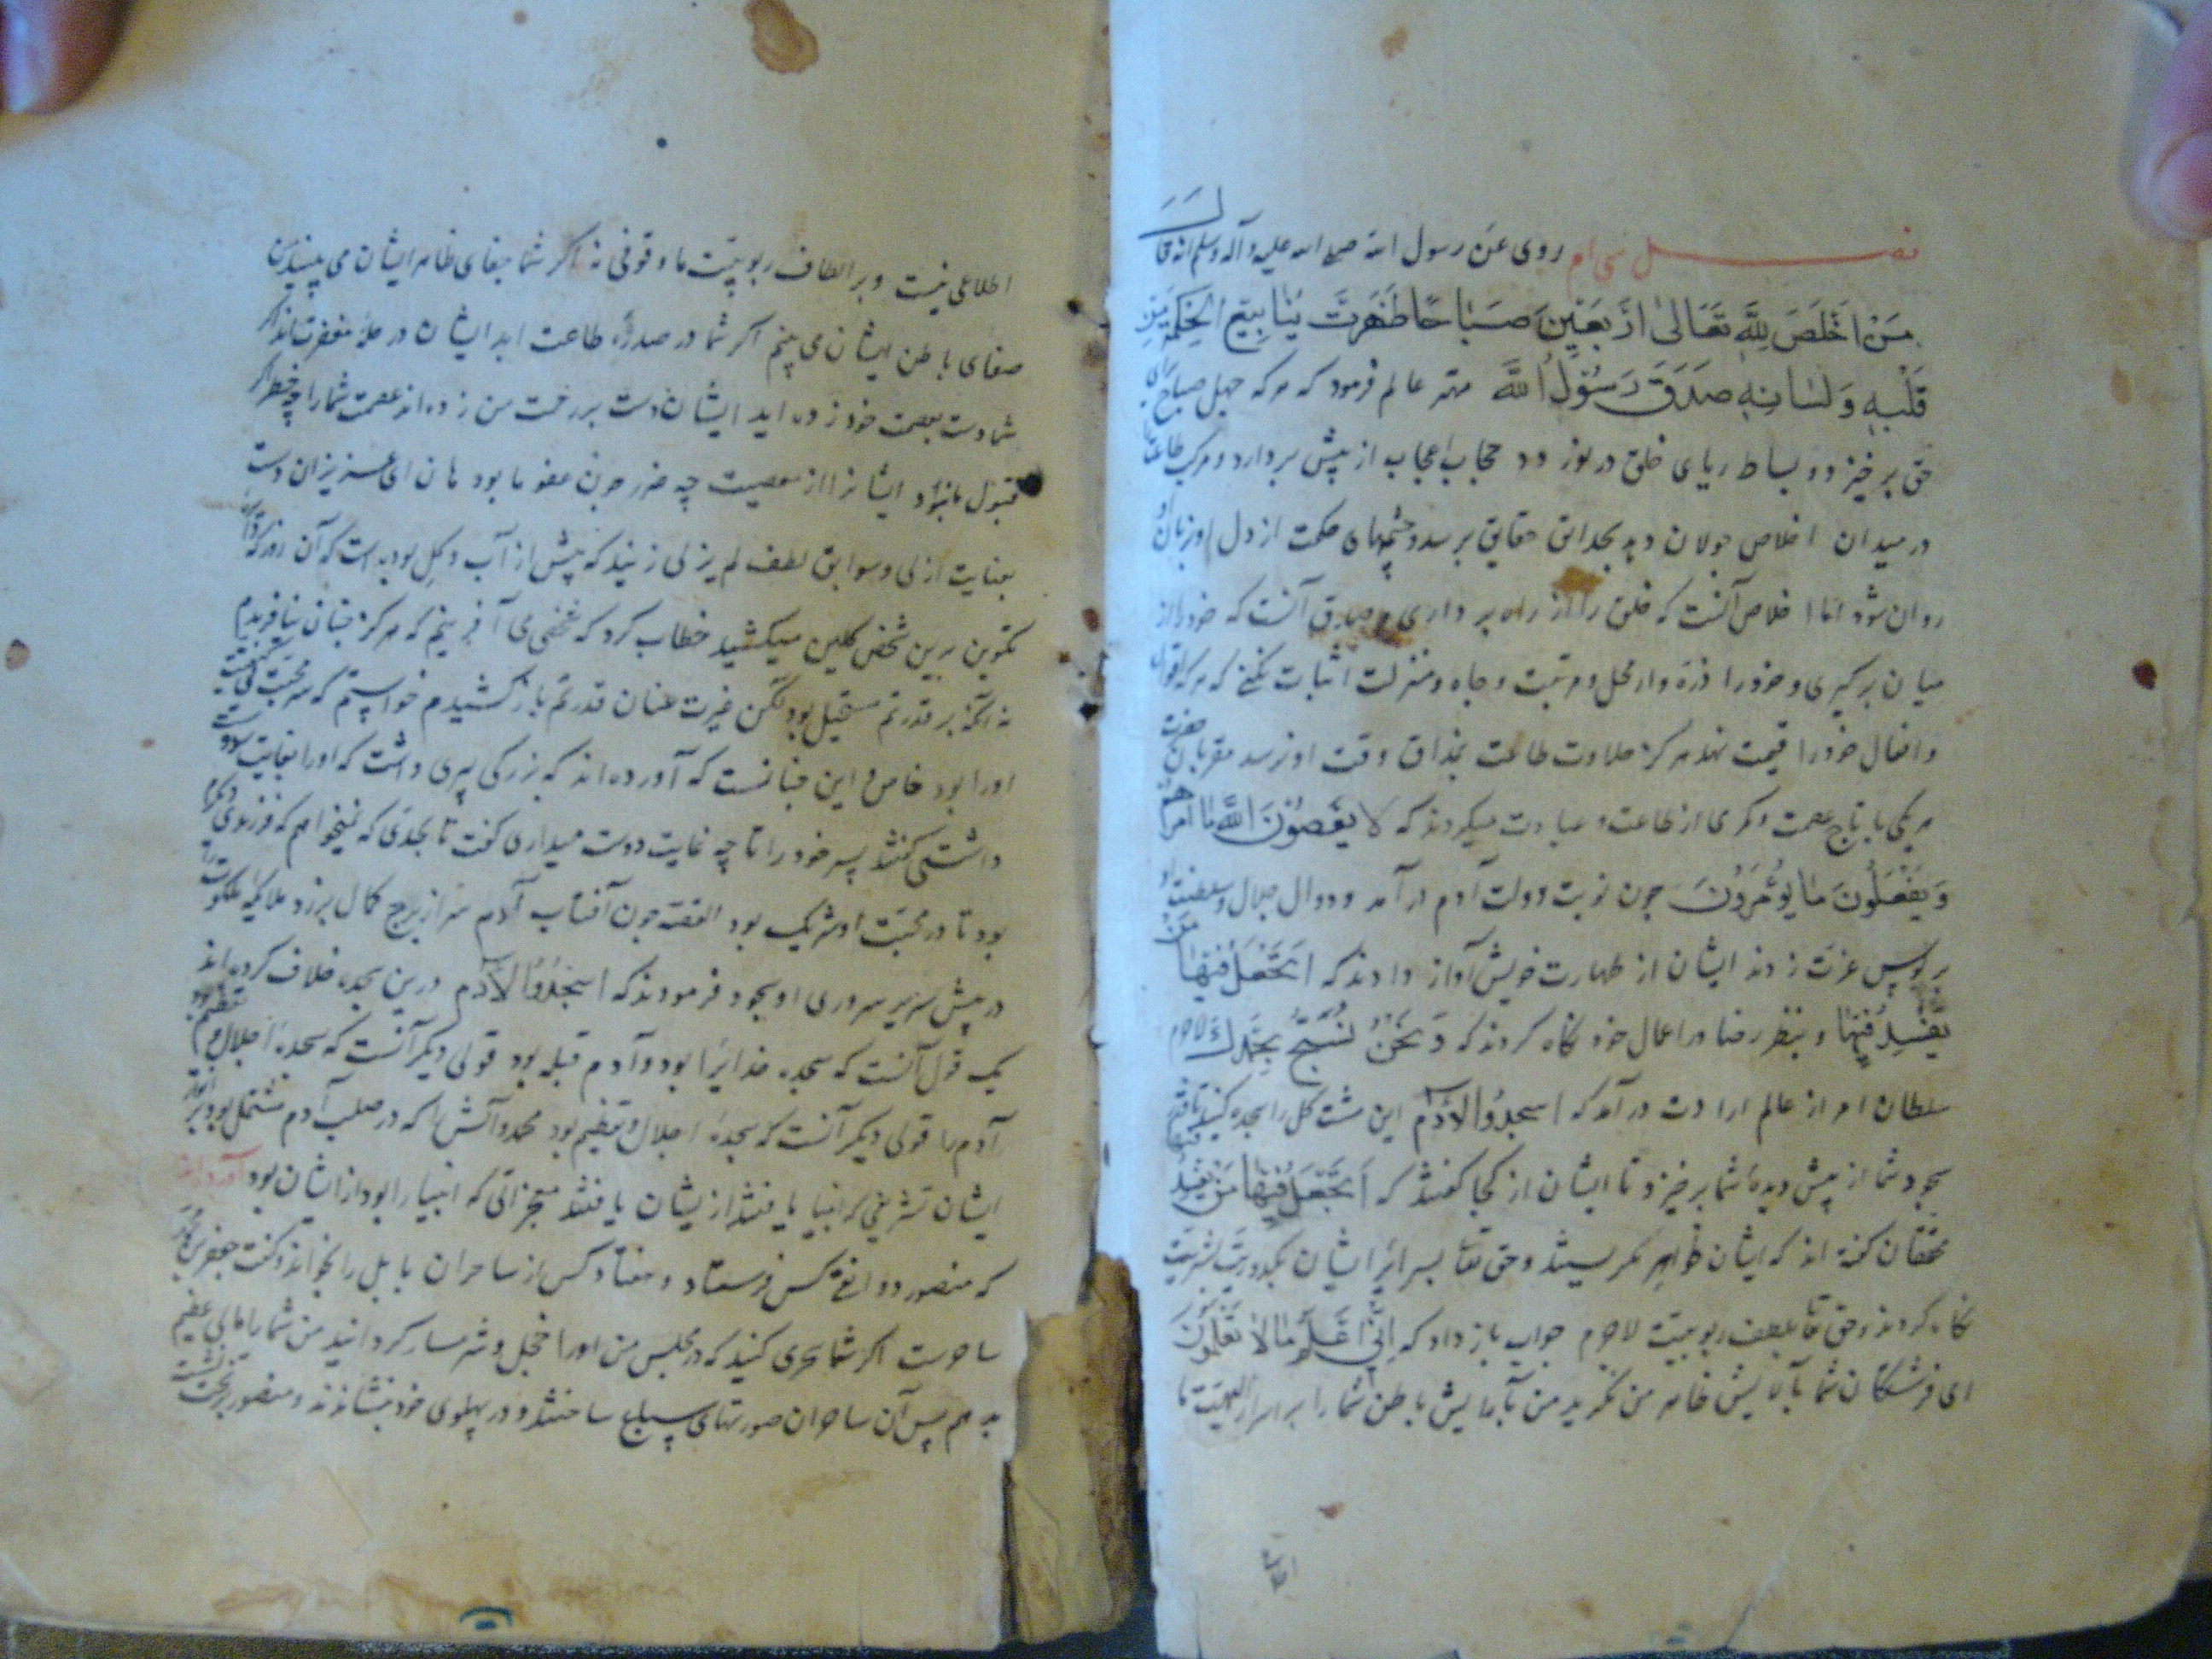 فصل سی ام روی عن رسول الله صلی الله علیه وآله وسلم انه قال
من اخلص لله تعالی اربعین صباحا ظهرت ینابیع الحکمة من
قلبه ولسانه صدق رسول الله مهتر عالم فرمود که هرکه چهل صباح برای
حق برخیزد و بساط ریای خلق در نوردد حجاب اعجاب از پیش بردارد و مرکب طاعت
در میدان اخلاص جولان دهد بحدایق حقایق برسد و چشمهای حکمت از دل او بزبان او
روان شود اما اخلاص آنست که خلق را از راه برداری و صدق آنست که خود را از
میان برگیری و خود را ذره وار محل و مرتبت و جاه و منزلت اثبات نکنی که هرکه اقوال
و افعال خود را قیمت نهد هرگز حلاوت طاعت بمذاق وقت او نرسد مقربان حضرت
هر یکی با تاج عصمت و کمری از طاعت و عبادت میکردند که لا یعصون الله ما امرهم
ویفعلون ما یؤمرون چون نوبت دولت آدم در آمد و دوال جلال و سلطنت او
بر کوس عزت زدند ایشان از طهارت خویش آواز دادند که اتجعل فیها من
یفسد فیها و بنظر رضا در اعمال خود نگاه کردند که ونحن نسبح بحمدک لاجرم
سلطان امر از عالم ارادت در آمد که اسجدوا لآدم این مشت گل را سجده کنید تا رقم
سجود شما از پیش دیدهٔ شما برخیزد تا ایشان از کجا گفتند که اتجعل فیها من یفسد فیها
محققان گفته اند که ایشان ظواهر نگریستند و حق تعالی بسرائر ایشان بکدورت بشریت
نگاه کردند و حق تعالی بلطف ربوبیت لاجرم جواب باز داد که انی اعلم ما لا تعلمون
ای فرشتگان شما بآلایش ظاهر من نگرید من بآرایش باطن شما را بر اسرار الهیت ما
اطلاعی
اطلاعی نیست و بر الطاف ربوبیت ما وقوفی نه اگر شما جفای ظاهر ایشان می بینید من
صفای باطن ایشان می بینم اگر شما در صدرهٔ طاعت اید ایشان در حلهٔ مغفرت اند اگر
شما دست بعصمت خود زده اید ایشان دست بر رحمت من زده اند عصمت شما را چه خطر اگر
قبول ما نبود و ایشانرا از معصیت چه ضرر چون عفو ما بود هان ای عزیزان دست
بعنایت ازلی و سوابق لطف لم یزلی زنید که پیش از آب و گل بوده است که آن روز که
تکوین برین شخص گلین میکشید خطاب کرد که شخصی می آفرینم که هرگز چنان نیافریدم
نه آنکه بر قدرتم مستحیل بود لکن غیرت عنان قدرتم باز کشیدم خواستم که سر محبت
اورا بود خاص و این چنانست که آورده اند که بزرگی پسری داشت که اورا بغایت دوست
داشتی گفتند پسر خود را تا چه غایت دوست میداری گفت تا بحدی که نمیخواهم که فرزندی دیگرم
بود تا در محبت او شریک بود القصه چون آفتاب آدم سر از برج کمال برزد ملائکهٔ ملکوت را
در پیش سریر سروری او بسجود فرمودند که اسجدوا لآدم درین سجده خلاف کرده اند
یک قول آنست که سجده خدایرا بود و آدم قبله بود قولی دیگر آنست که سجدهٔ اجلال و تعظیم بود
آدم را قولی دیگر آنست که سجدهٔ اجلال و تعظیم بود محمد و آلش را که در صلب آدم مشتمل بود بر
ایشان تشریفی که انبیا یافتند از ایشان یافتند معجزاتی که انبیا را بود از ایشان بود آورده اند
که منصور دوانقی کس فرستاد و هفتاد کس از ساحران بابل را بخواند و گفت جعفر بن محمد
ساحرست اگر شما سحری کنید که در مجلس من اورا خجل و شرمسار گردانید من شما را مالی عظیم
بدهم پس آن ساحران صورتهای سباع ساختند و در پهلوی خود بنشاندند و منصور بر تخت بنشست